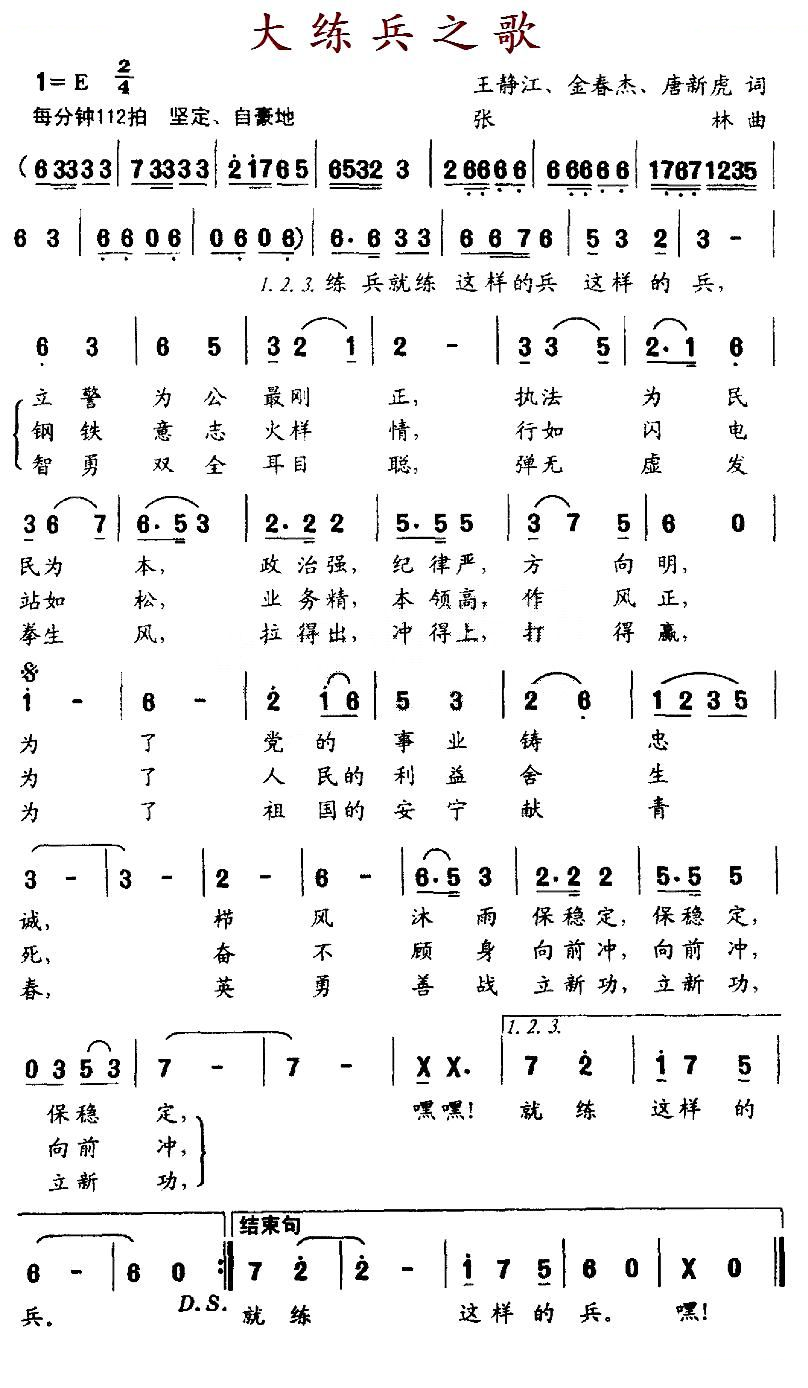 大练兵之歌
1=E 2/4
王静江、金春杰、唐新虎 词
每分钟112拍 坚定、自豪地
张 林 曲
(6 3 3 3 3 | 7 3 3 3 3 | 2 1 7 6 5 | 6 5 3 2 3 | 2 6 6 6 6 | 6 6 6 6 6 | 1 7 6 7 1 2 3 5 |
6 3 | 6 6 0 6 | 0 6 0 6) | 6· 6 3 3 | 6 6 7 6 | 5 3 2 | 3 - |
1.2.3.练兵就练 这样的兵 这样的兵,
6 3 | 6 5 | 3 2 1 | 2 - | 3 3 5 | 2·1 6 |
立警为公最刚正,执法为民
钢铁意志火样情,行如闪电
智勇双全耳目聪,弹无虚发
3 6 7 | 6·5 3 | 2·2 2 | 5·5 5 | 3 7 5 | 6 0 |
民为本,政治强,纪律严,方向明,
站如松,业务精,本领高,作风正,
拳生风,拉得出,冲得上,打得赢,
1 - | 6 - | 2 1 6 | 5 3 | 2 6 | 1 2 3 5 |
为了党的事业铸忠
为了人民的利益舍生
为了祖国的安宁献青
3 - | 3 - | 2 - | 6 - | 6·5 3 | 2·2 2 | 5·5 5 |
诚,栉风沐雨保稳定,保稳定,
死,奋不顾身向前冲,向前冲,
春,英勇善战立新功,立新功,
1.2.3.
0 3 5 3 | 7 - | 7 - | X X· | 7 2 | 1 7 5 |
保稳定,嘿嘿!就练这样的
向前冲,
立新功,
结束句
6 - | 6 0 :‖ 7 2 | 2 - | 1 7 5 | 6 0 | X 0 ‖
兵。 D.S. 就练 这样的兵。嘿!